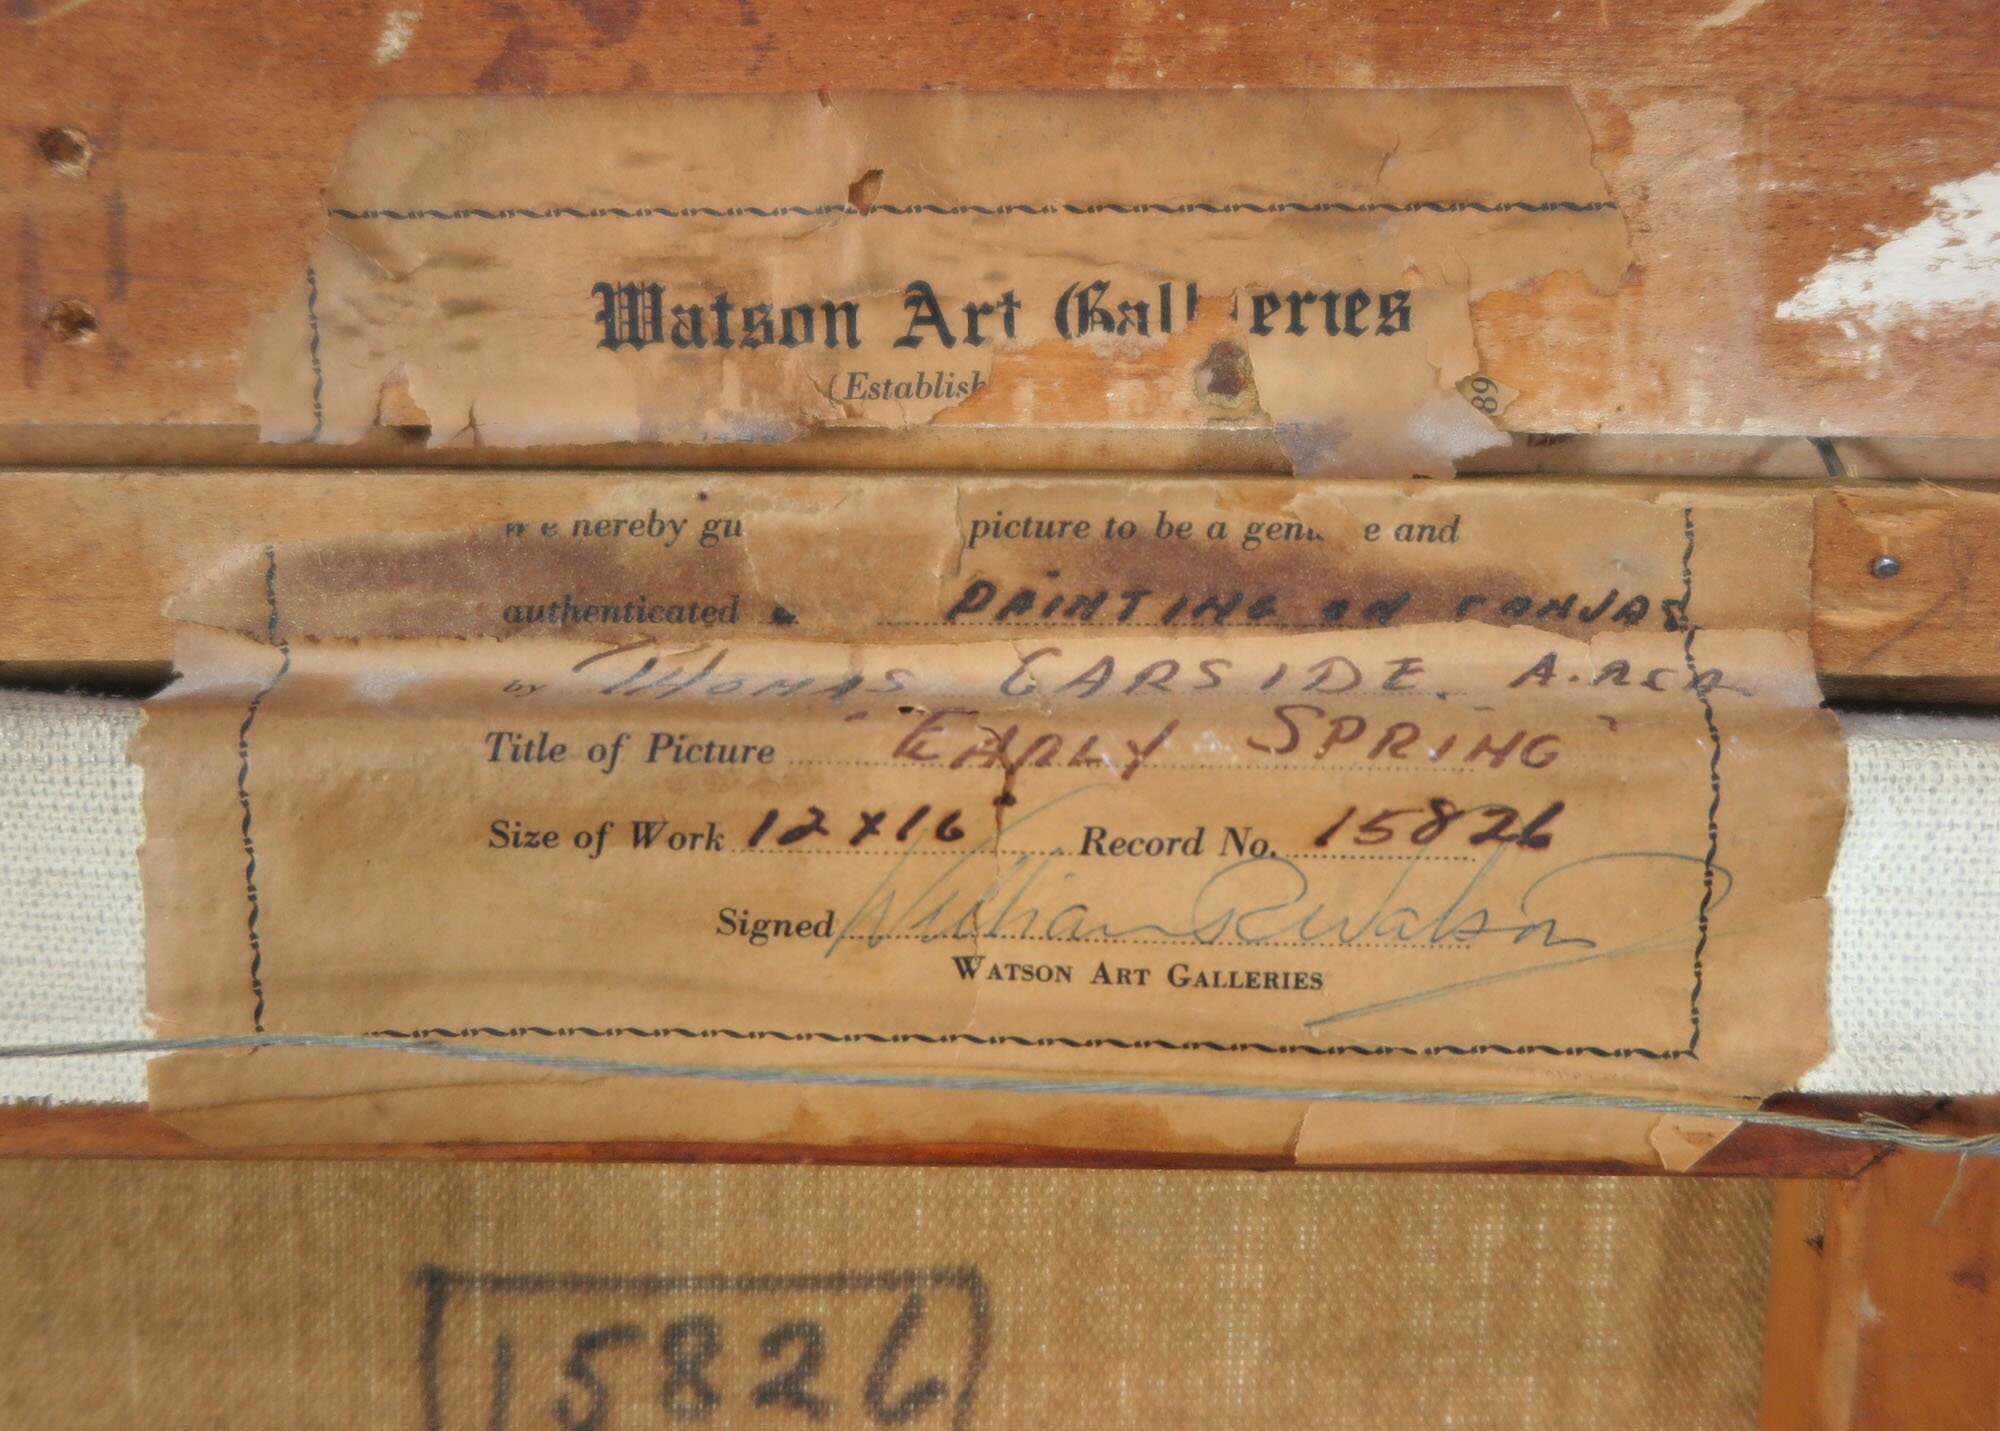 Watson Art Galleries
(Establish
89
We hereby gu picture to be a gen e and
authenticated PAINTING ON CANVAS
by THOMAS GARSIDE. A.R.C.A.
Title of Picture "EARLY SPRING"
Size of Work 12 x 16" Record No. 15826
Signed William R Watson
WATSON ART GALLERIES
15826